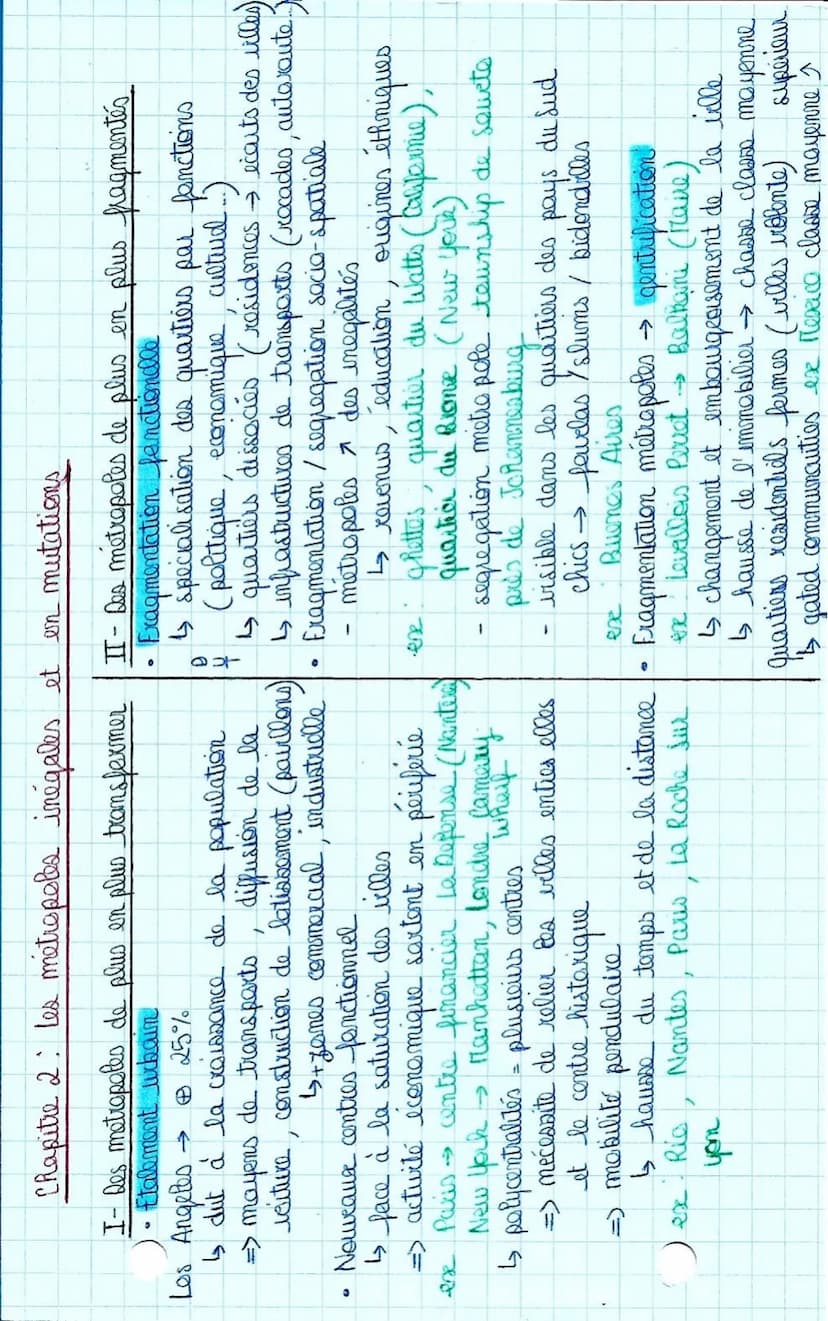 Chapitre 2 : Les métropoles inégales et en mutations
I- Des métropoles de plus en plus transformer
• Etalement urbain
Los Angeles → ⊕ 25%
↳ dut à la croissance de la population
=> moyens de transports, diffusion de la
voiture, construction de lotissement (pavillons)
↳ + zones commercial, industrielle
• Nouveaux centres fonctionnel
↳ face à la saturation des villes
=> activité économique sortent en périférie
ex Paris → centre financier La Défense (Nanterre)
New York → Manhattan, Londre Camary
Wharf
↳ polycentralités = plusieurs centres
=> nécessité de relier ces villes entres elles
et le centre historique
=> mobilité pendulaire
↳ hausse du temps et de la distance
ex : Rio, Nantes, Paris, La Roche sur
yon
II- Des métropoles de plus en plus fragmentés
• Fragmentation fonctionelle
↳ spécialisation des quartiers par fonctions
(politique, economique, culturel...)
↳ quartiers dissociés (résidences → écarts des villes)
↳ infrastuctures de transports (rocades, autoroute...)
• Fragmentation / ségrégation socio-spatiale
- métropoles ↗ des inégalités
↳ revenus, éducation, origines éthniques
ex : ghettos, quartier du Watts (Californie),
quartier du Bronx (New York)
- segregation métropole township de Soweto
près de Johannesburg
- visible dans les quartiers des pays du Sud
chics → favelas / slums / bidonvilles
ex : Buenos Aires
• Fragmentation métropoles → gentrification
ex Levallois Perret → Balkani (Maire)
↳ changement et embourgeoisement de la ville
↳ hausse de l'immobilier → chasse classe moyenne
quartiers residentiels fermés (villes volonté) supérieur
↳ gated communauties ex Mexico classe moyenne ↗